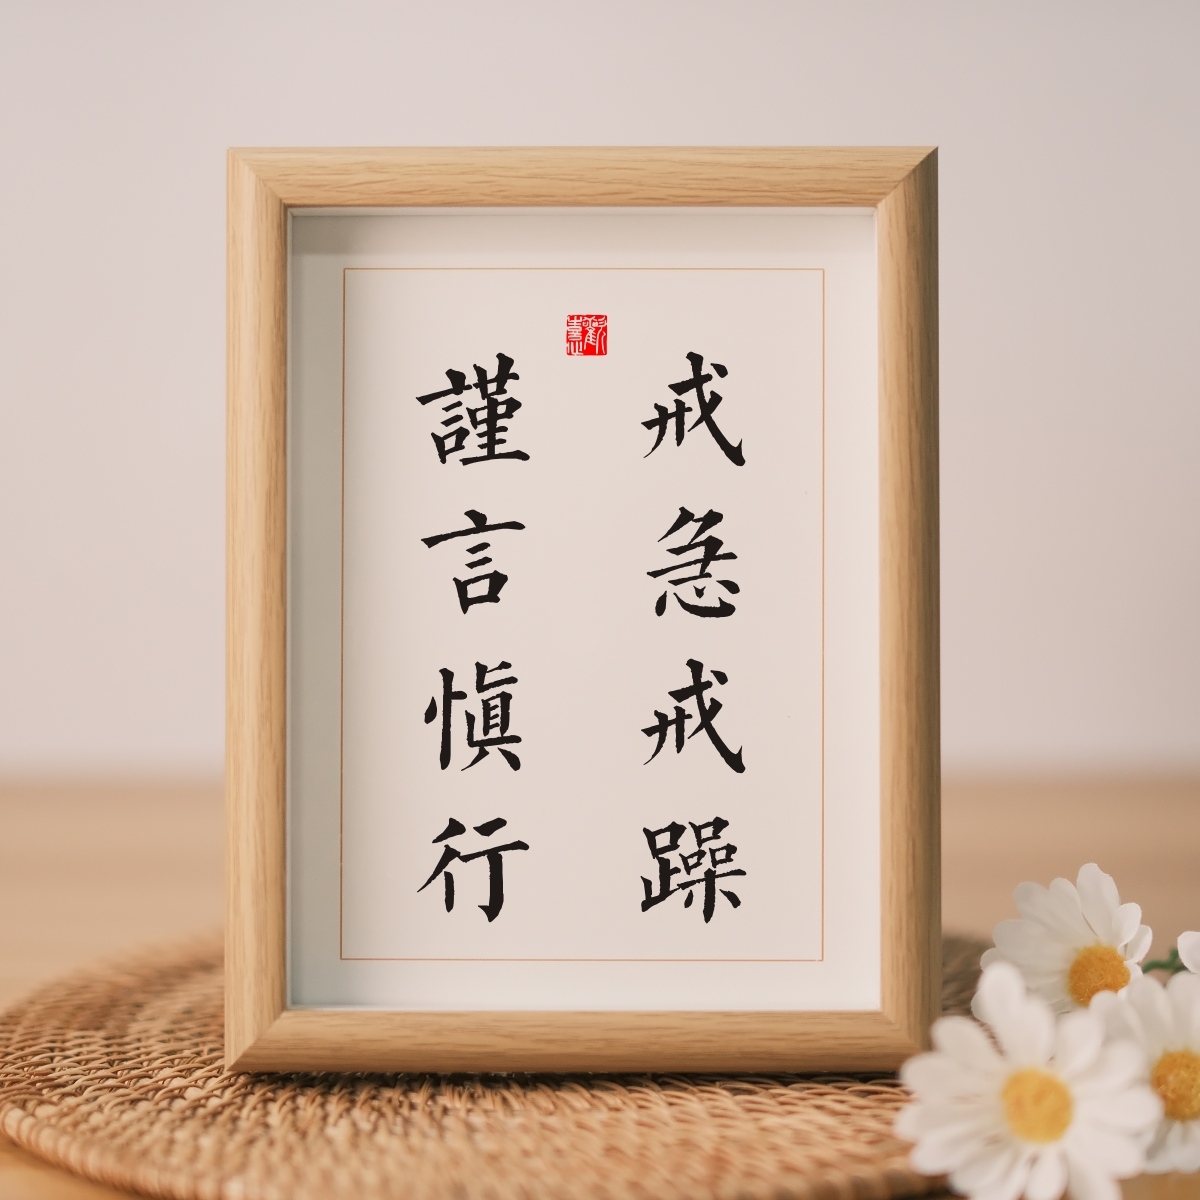 戒急戒躁
謹言慎行
歡喜